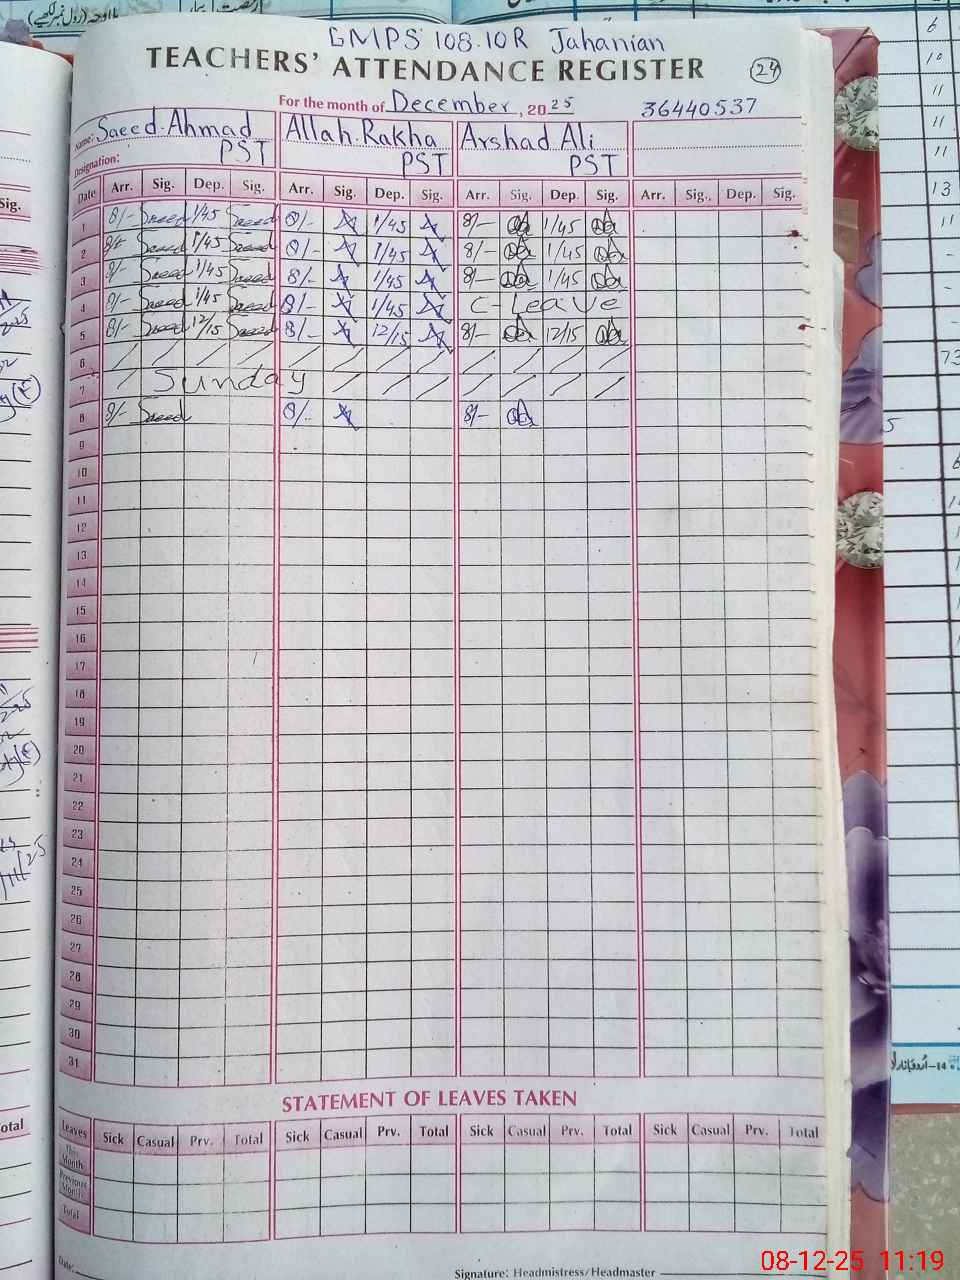 GMPS 108.10R Jahanian
TEACHERS' ATTENDANCE REGISTER 24
For the month of December, 2025 36440537
Name: Saeed Ahmad Allah Rakha Arshad Ali
Designation: PST PST PST
Date Arr. Sig. Dep. Sig. Arr. Sig. Dep. Sig. Arr. Sig. Dep. Sig. Arr. Sig. Dep. Sig.
1 8/- Saeed 1/45 Saeed 8/- 1/45 8/- 1/45
2 8/- Saeed 1/45 Saeed 8/- 1/45 8/- 1/45
3 8/- Saeed 1/45 Saeed 8/- 1/45 8/- 1/45
4 8/- Saeed 1/45 Saeed 8/- 1/45 C-Leave
5 8/- Saeed 12/15 Saeed 8/- 12/15 8/- 12/15
6 / / / / / / / / / / / /
7 / Sunday / / / / / / /
8 8/- Saeed 8/- 8/-
9
10
11
12
13
14
15
16
17
18
19
20
21
22
23
24
25
26
27
28
29
30
31
STATEMENT OF LEAVES TAKEN
Leaves Sick Casual Prv. Total Sick Casual Prv. Total Sick Casual Prv. Total Sick Casual Prv. Total
This Month
Previous Month
Total
Date:
Signature: Headmistress/Headmaster
08-12-25 11:19